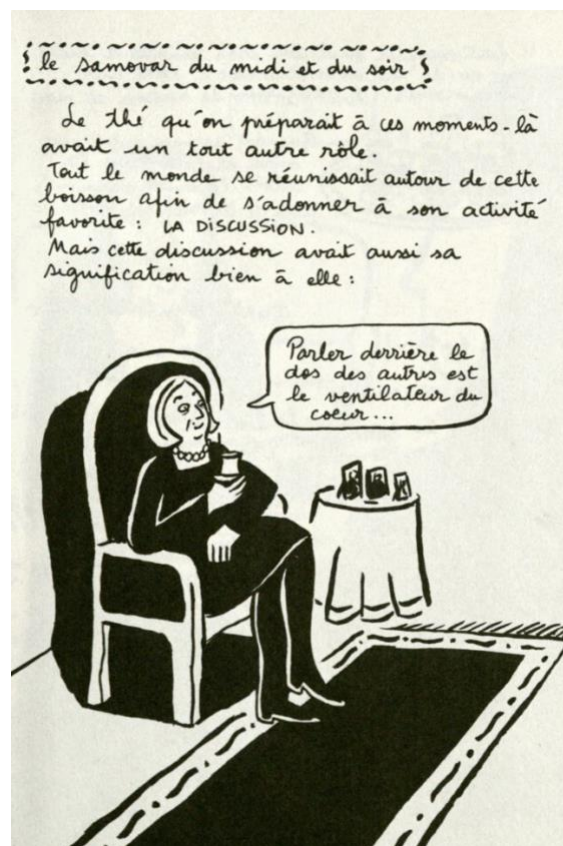 le samovar du midi et du soir
Le thé qu'on préparait à ces moments-là
avait un tout autre rôle.
Tout le monde se réunissait autour de cette
boisson afin de s'adonner à son activité
favorite : LA DISCUSSION.
Mais cette discussion avait aussi sa
signification bien à elle :
Parler derrière le
dos des autres est
le ventilateur du
coeur...